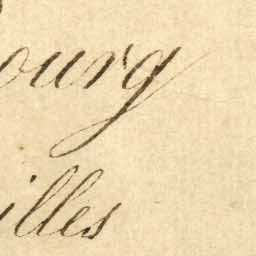 ourg
illes